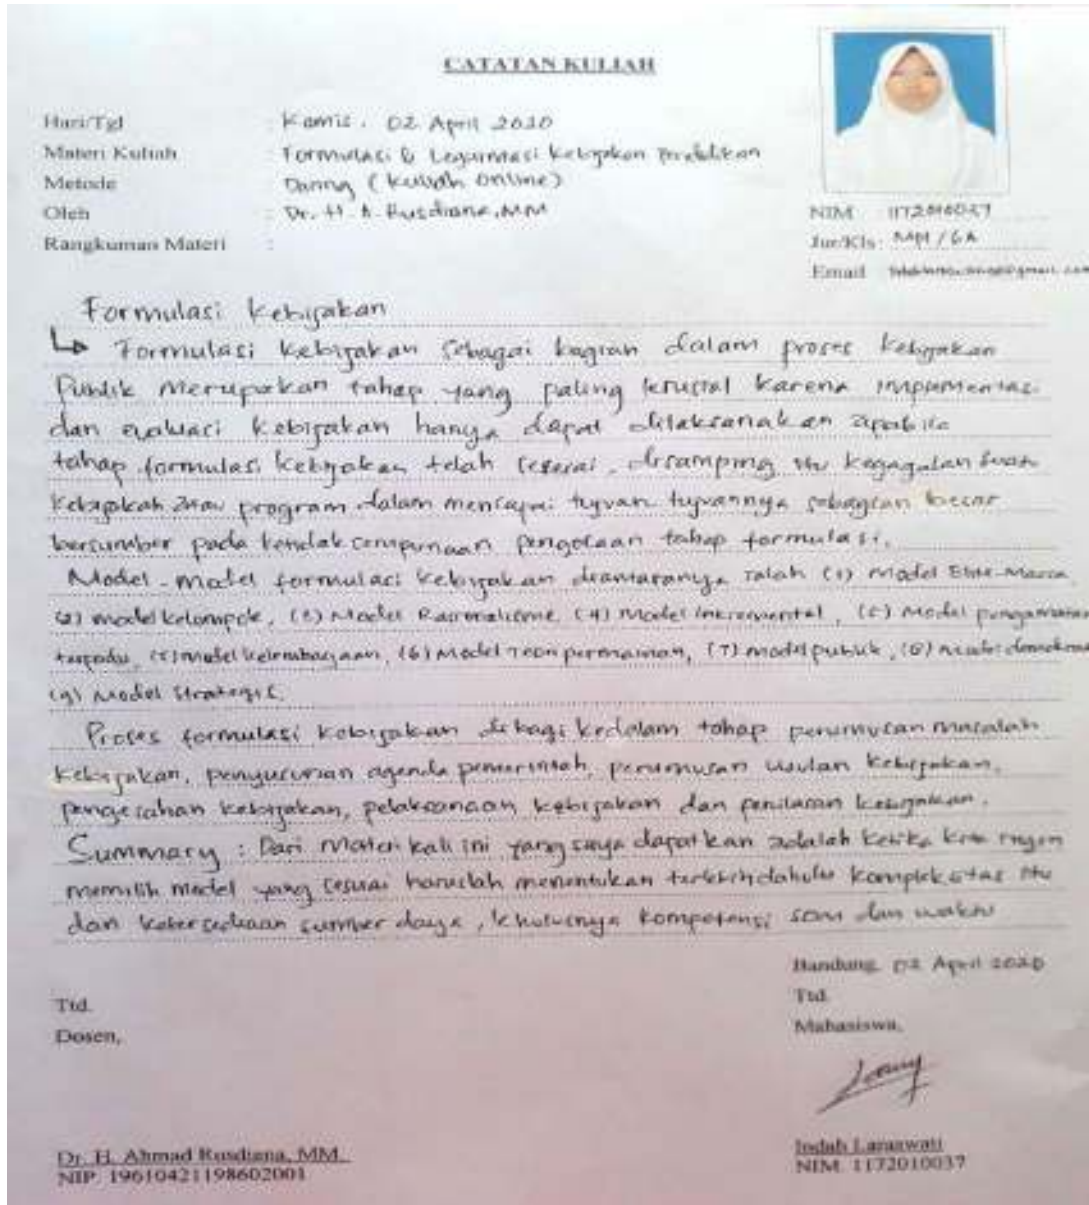 CATATAN KULIAH
Hari/Tgl : Kamis, 02 April 2020
Materi Kuliah : Formulasi & Legitimasi Kebijakan Pendidikan
Metode : Daring (Kuliah Online)
Oleh : Dr. H. A. Rusdiana, MM
Rangkuman Materi :
NIM : 1172010037
Jur/Kls : MPI / 6A
Email :
Formulasi Kebijakan
↳ Formulasi kebijakan sebagai bagian dalam proses kebijakan
Publik merupakan tahap yang paling krusial karena implementasi
dan evaluasi kebijakan hanya dapat dilaksanakan apabila
tahap formulasi kebijakan telah selesai, disamping itu kegagalan suatu
kebijakan atau program dalam mencapai tujuan tujuannya sebagian besar
bersumber pada ketidak sempurnaan pengolaan tahap formulasi.
Model-model formulasi kebijakan diantaranya ialah (1) model Elite-Massa
(2) model kelompok, (3) Model Rasionalisme, (4) Model Inkremental, (5) Model pengamatan
terpadu, (5) model kelembagaan, (6) Model teori permainan, (7) model publik, (8) model demokrasi
(9) Model Strategis.
Proses formulasi kebijakan dibagi kedalam tahap perumusan masalah
kebijakan, penyusunan agenda pemerintah, perumusan usulan kebijakan,
pengesahan kebijakan, pelaksanaan kebijakan dan penilaian kebijakan.
Summary : Dari materi kali ini yang saya dapatkan adalah ketika kita ingin
memilih model yang sesuai haruslah menentukan terlebih dahulu kompleksitas itu
dan ketersediaan sumber daya, khususnya kompetensi SDM dan waktu
Bandung, 02 April 2020
Ttd.
Dosen,
Ttd.
Mahasiswa,
Dr. H. Ahmad Rusdiana, MM.
NIP. 19610421198602001
Indah Laraswati
NIM. 1172010037